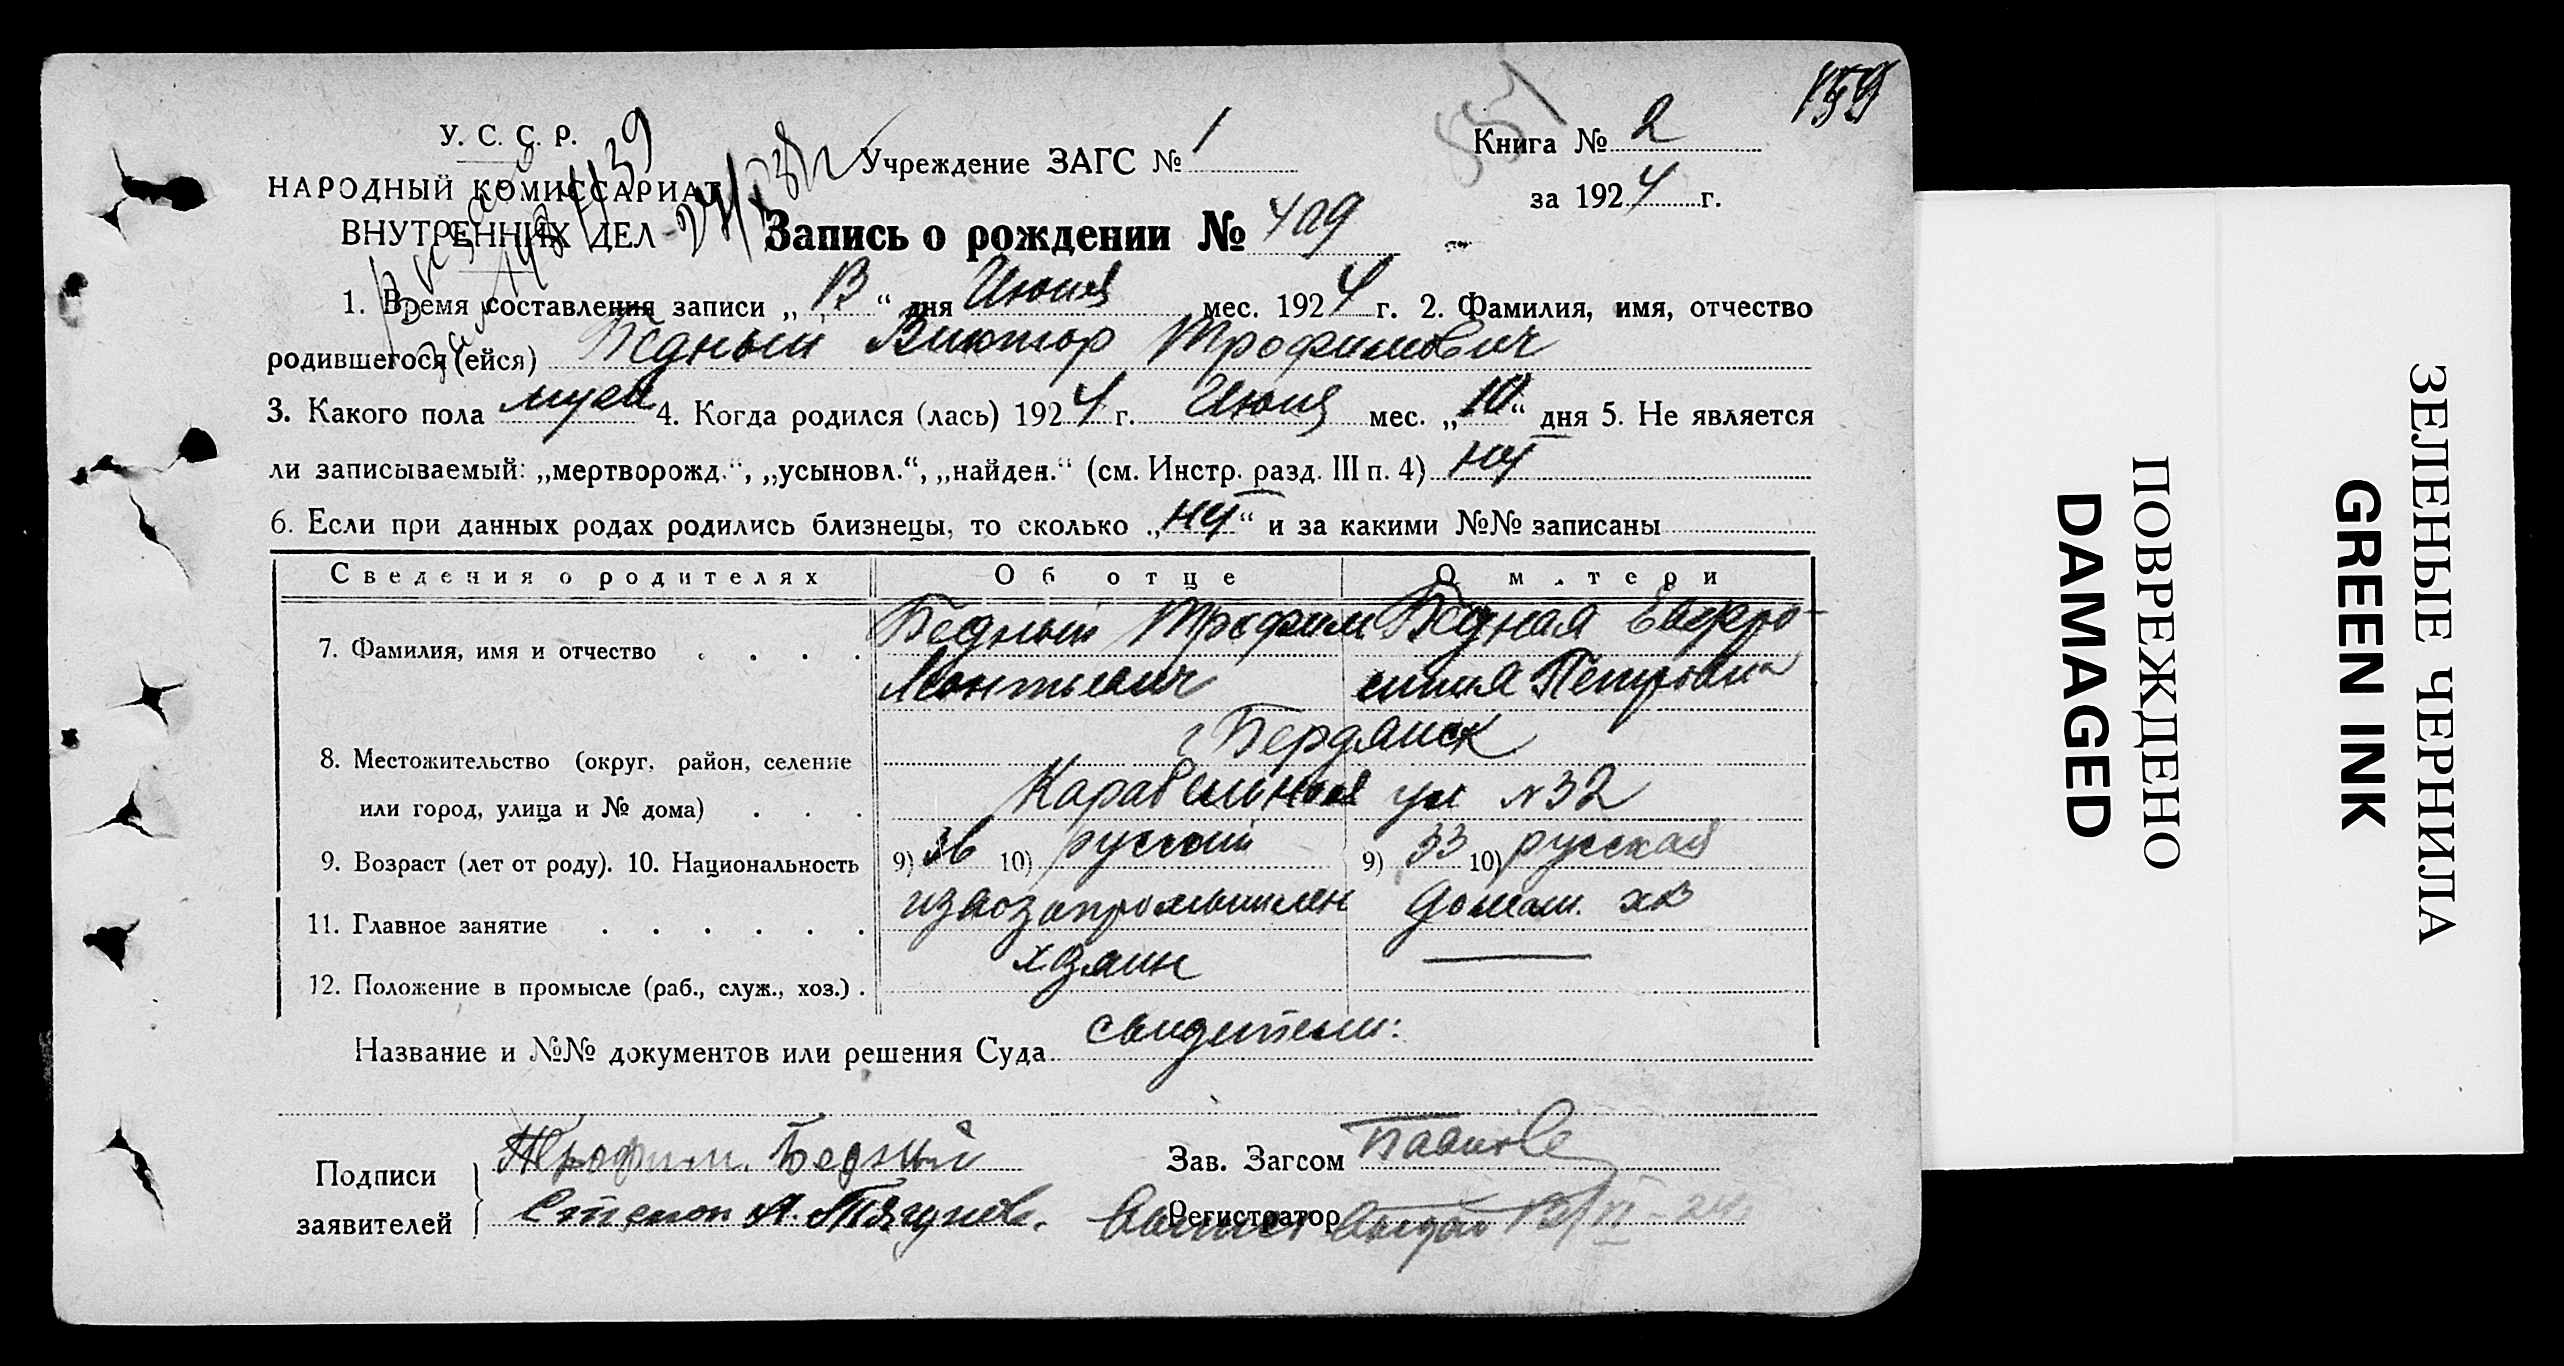 159
У. С. С. Р.
НАРОДНЫЙ КОМИССАРИАТ
ВНУТРЕННИХ ДЕЛ
Учреждение ЗАГС № 1
Книга № 2
за 1924 г.
Запись о рождении № 409
1. Время составления записи „13“ дня Июня мес. 1924 г. 2. Фамилия, имя, отчество
родившегося (ейся) Бедный Виктор Трофимович
3. Какого пола муж 4. Когда родился (лась) 1924 г. Июня мес. „10“ дня 5. Не является
ли записываемый: „мертворожд.“, „усыновл.“, „найден.“ (см. Инстр. разд. III п. 4) нет
6. Если при данных родах родились близнецы, то сколько „нет“ и за какими №№ записаны
Сведения о родителях Об отце О матери
7. Фамилия, имя и отчество . . . . Бедный Трофим Леонтьевич Бедная Евфро-
синия Петровна
8. Местожительство (округ, район, селение г Бердянск
или город, улица и № дома) . . . Карабельная ул №32
9. Возраст (лет от роду). 10. Национальность 9) 36 10) русский 9) 33 10) русская
11. Главное занятие . . . . . . извозопромышлен домаш. хоз
12. Положение в промысле (раб., служ., хоз.) . хозяин —
Название и №№ документов или решения Суда свидетели:
Подписи
заявителей
Трофим. Бедный
Степан А. Тягунов.
Зав. Загсом
Регистратор 13/VI-24
ЗЕЛЕНЫЕ ЧЕРНИЛА
GREEN INK
ПОВРЕЖДЕНО
DAMAGED